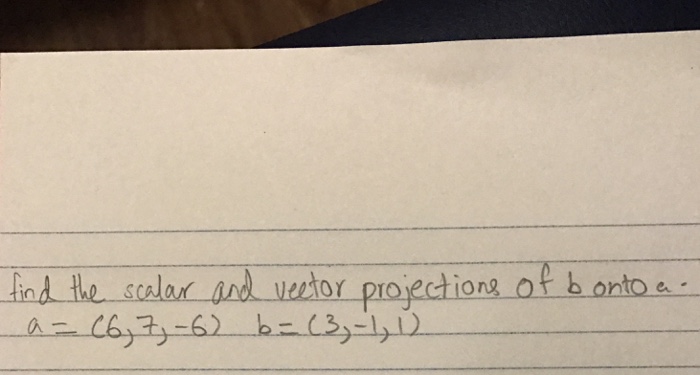 find the scalar and vector projections of b onto a.
a = (6,7,-6) b = (3,-1,1)